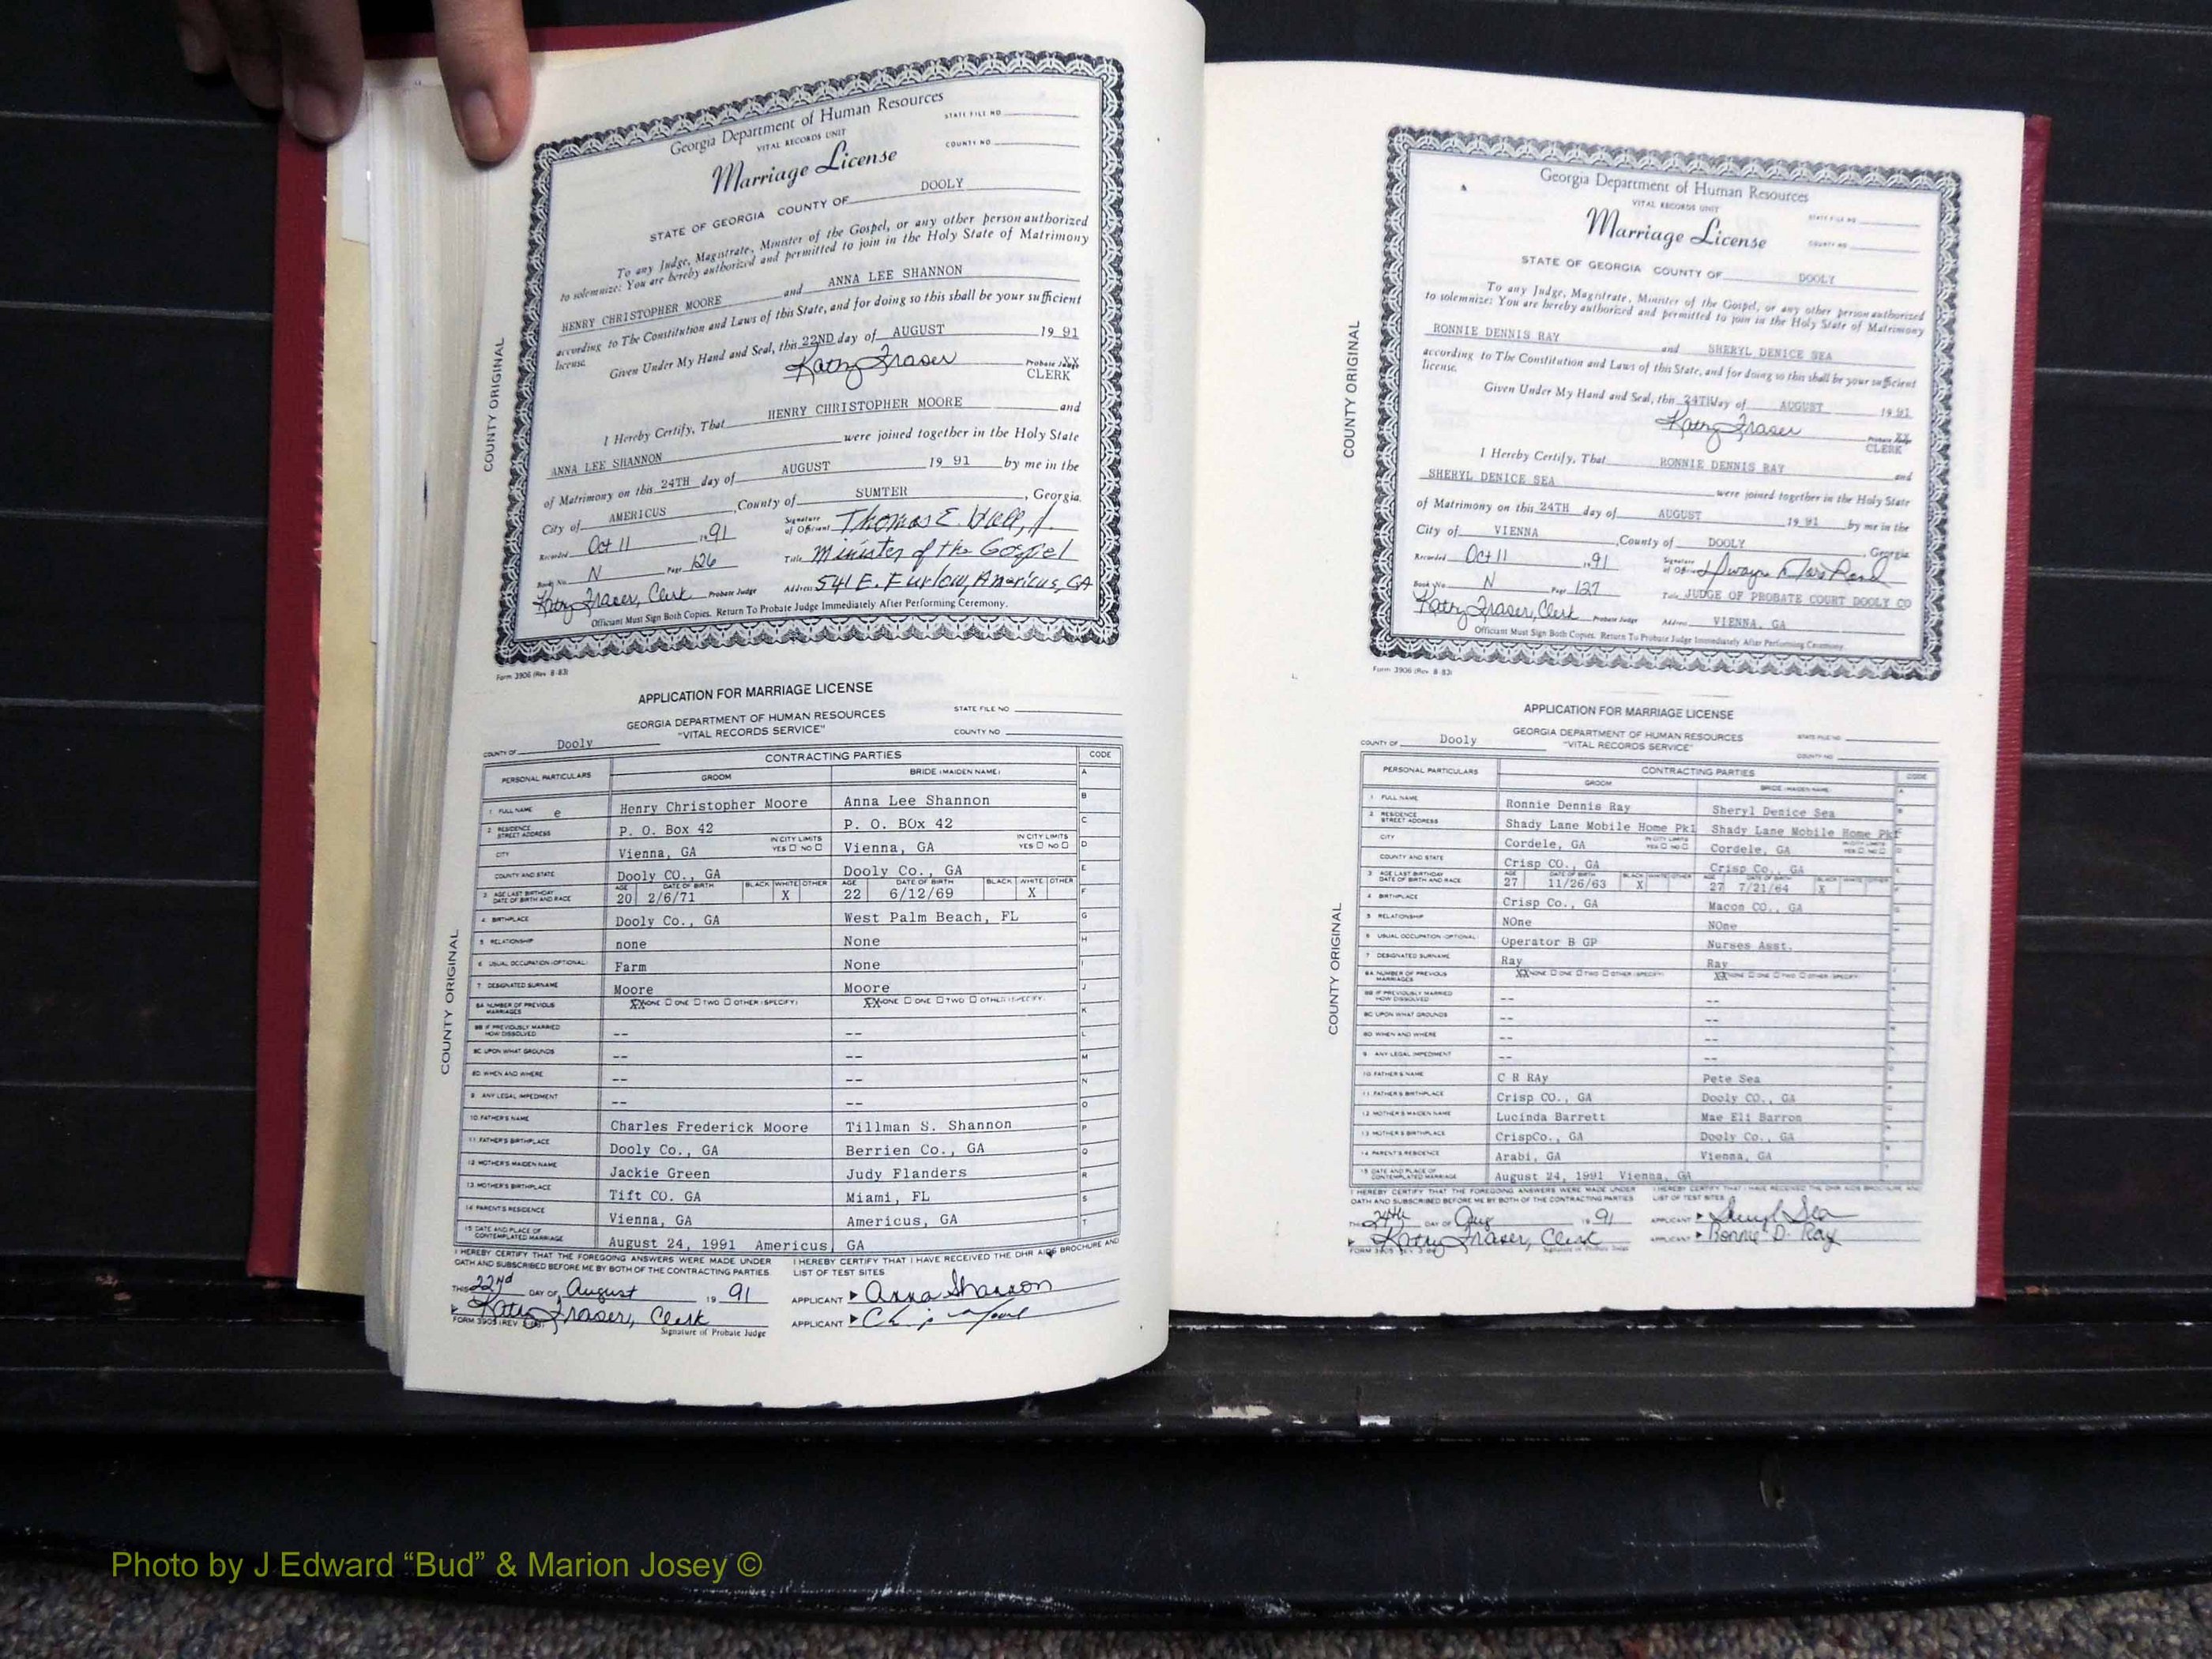 Georgia Department of Human Resources
VITAL RECORDS UNIT
STATE FILE NO
COUNTY NO
Marriage License
STATE OF GEORGIA COUNTY OF DOOLY
To any Judge, Magistrate, Minister of the Gospel, or any other person authorized
to solemnize: You are hereby authorized and permitted to join in the Holy State of Matrimony
HENRY CHRISTOPHER MOORE and ANNA LEE SHANNON
according to The Constitution and Laws of this State, and for doing so this shall be your sufficient
license.
Given Under My Hand and Seal, this 22ND day of AUGUST 19 91
Kathy Fraser Probate Judge
CLERK
I Hereby Certify, That HENRY CHRISTOPHER MOORE and
ANNA LEE SHANNON were joined together in the Holy State
of Matrimony on this 24TH day of AUGUST 19 91 by me in the
City of AMERICUS, County of SUMTER, Georgia.
Recorded Oct 11 1991 Signature of Officiant Thomas E.
Book No. N Page 126 Title Minister of the Gospel
Kathy Fraser, Clerk Probate Judge Address 541 E. Furlow, Americus, GA
Officiant Must Sign Both Copies. Return To Probate Judge Immediately After Performing Ceremony.
COUNTY ORIGINAL
Form 3906 (Rev. 8-83)
APPLICATION FOR MARRIAGE LICENSE
GEORGIA DEPARTMENT OF HUMAN RESOURCES
"VITAL RECORDS SERVICE"
STATE FILE NO
COUNTY NO
COUNTY OF Dooly
PERSONAL PARTICULARS CONTRACTING PARTIES CODE
GROOM BRIDE (MAIDEN NAME) A
1 FULL NAME e Henry Christopher Moore Anna Lee Shannon B
2 RESIDENCE STREET ADDRESS P. O. Box 42 P. O. BOx 42 C
CITY Vienna, GA IN CITY LIMITS YES NO Vienna, GA IN CITY LIMITS YES NO D
COUNTY AND STATE Dooly CO., GA Dooly Co., GA E
3 AGE LAST BIRTHDAY DATE OF BIRTH AND RACE AGE 20 DATE OF BIRTH 2/6/71 BLACK WHITE X OTHER AGE 22 DATE OF BIRTH 6/12/69 BLACK WHITE X OTHER F
4 BIRTHPLACE Dooly Co., GA West Palm Beach, FL G
5 RELATIONSHIP none None H
6 USUAL OCCUPATION (OPTIONAL) Farm None I
7 DESIGNATED SURNAME Moore Moore J
8A NUMBER OF PREVIOUS MARRIAGES XXNONE ONE TWO OTHER (SPECIFY) XXNONE ONE TWO OTHER (SPECIFY) K
8B IF PREVIOUSLY MARRIED HOW DISSOLVED -- -- L
8C UPON WHAT GROUNDS -- -- M
8D WHEN AND WHERE -- -- N
9 ANY LEGAL IMPEDIMENT -- -- O
10 FATHER'S NAME Charles Frederick Moore Tillman S. Shannon P
11 FATHER'S BIRTHPLACE Dooly Co., GA Berrien Co., GA Q
12 MOTHER'S MAIDEN NAME Jackie Green Judy Flanders R
13 MOTHER'S BIRTHPLACE Tift CO. GA Miami, FL S
14 PARENT'S RESIDENCE Vienna, GA Americus, GA T
15 DATE AND PLACE OF CONTEMPLATED MARRIAGE August 24, 1991 Americus, GA
I HEREBY CERTIFY THAT THE FOREGOING ANSWERS WERE MADE UNDER I HEREBY CERTIFY THAT I HAVE RECEIVED THE DHR AIDS BROCHURE AND
OATH AND SUBSCRIBED BEFORE ME BY BOTH OF THE CONTRACTING PARTIES LIST OF TEST SITES
THIS 22nd DAY OF August 19 91 APPLICANT Anna Shannon
Kathy Fraser, Clerk APPLICANT
FORM 3905 (REV. Signature of Probate Judge
COUNTY ORIGINAL
Georgia Department of Human Resources
VITAL RECORDS UNIT
STATE FILE NO
COUNTY NO
Marriage License
STATE OF GEORGIA COUNTY OF DOOLY
To any Judge, Magistrate, Minister of the Gospel, or any other person authorized
to solemnize: You are hereby authorized and permitted to join in the Holy State of Matrimony
RONNIE DENNIS RAY and SHERYL DENICE SEA
according to The Constitution and Laws of this State, and for doing so this shall be your sufficient
license.
Given Under My Hand and Seal, this 24TH day of AUGUST 19 91
Kathy Fraser Probate Judge
CLERK
I Hereby Certify, That RONNIE DENNIS RAY and
SHERYL DENICE SEA were joined together in the Holy State
of Matrimony on this 24TH day of AUGUST 19 91 by me in the
City of VIENNA, County of DOOLY, Georgia
Recorded Oct 11 1991 Signature of
Book No. N Page 127 Title JUDGE OF PROBATE COURT DOOLY CO
Kathy Fraser, Clerk Probate Judge Address VIENNA, GA
Officiant Must Sign Both Copies. Return To Probate Judge Immediately After Performing Ceremony.
COUNTY ORIGINAL
Form 3906 (Rev. 8-83)
APPLICATION FOR MARRIAGE LICENSE
GEORGIA DEPARTMENT OF HUMAN RESOURCES
"VITAL RECORDS SERVICE"
STATE FILE NO
COUNTY NO
COUNTY OF Dooly
PERSONAL PARTICULARS CONTRACTING PARTIES CODE
GROOM BRIDE (MAIDEN NAME)
1 FULL NAME Ronnie Dennis Ray Sheryl Denice Sea
2 RESIDENCE STREET ADDRESS Shady Lane Mobile Home Pk1 Shady Lane Mobile Home Pk
CITY Cordele, GA IN CITY LIMITS YES NO Cordele, GA IN CITY LIMITS YES NO
COUNTY AND STATE Crisp CO., GA Crisp Co., GA
3 AGE LAST BIRTHDAY DATE OF BIRTH AND RACE AGE 27 DATE OF BIRTH 11/26/63 BLACK X WHITE OTHER AGE 27 DATE OF BIRTH 7/21/64 BLACK X WHITE OTHER
4 BIRTHPLACE Crisp Co., GA Macon CO., GA
5 RELATIONSHIP NOne NOne
6 USUAL OCCUPATION (OPTIONAL) Operator B GP Nurses Asst.
7 DESIGNATED SURNAME Ray Ray
8A NUMBER OF PREVIOUS MARRIAGES XXNONE ONE TWO OTHER (SPECIFY) XXNONE ONE TWO OTHER (SPECIFY)
8B IF PREVIOUSLY MARRIED HOW DISSOLVED -- --
8C UPON WHAT GROUNDS -- --
8D WHEN AND WHERE -- --
9 ANY LEGAL IMPEDIMENT -- --
10 FATHER'S NAME C R RAy Pete Sea
11 FATHER'S BIRTHPLACE Crisp CO., GA Dooly CO., GA
12 MOTHER'S MAIDEN NAME Lucinda Barrett Mae Eli Barron
13 MOTHER'S BIRTHPLACE CrispCo., GA Dooly Co., GA
14 PARENT'S RESIDENCE Arabi, GA Vienna, GA
15 DATE AND PLACE OF CONTEMPLATED MARRIAGE August 24, 1991 Vienna, GA
I HEREBY CERTIFY THAT THE FOREGOING ANSWERS WERE MADE UNDER I HEREBY CERTIFY THAT I HAVE RECEIVED THE DHR AIDS BROCHURE AND
OATH AND SUBSCRIBED BEFORE ME BY BOTH OF THE CONTRACTING PARTIES LIST OF TEST SITES
THIS 24th DAY OF Aug 19 91 APPLICANT Sheryl Sea
Kathy Fraser, Clerk APPLICANT Ronnie D. Ray
FORM 3905 Signature of Probate Judge
COUNTY ORIGINAL
Photo by J Edward “Bud” & Marion Josey ©